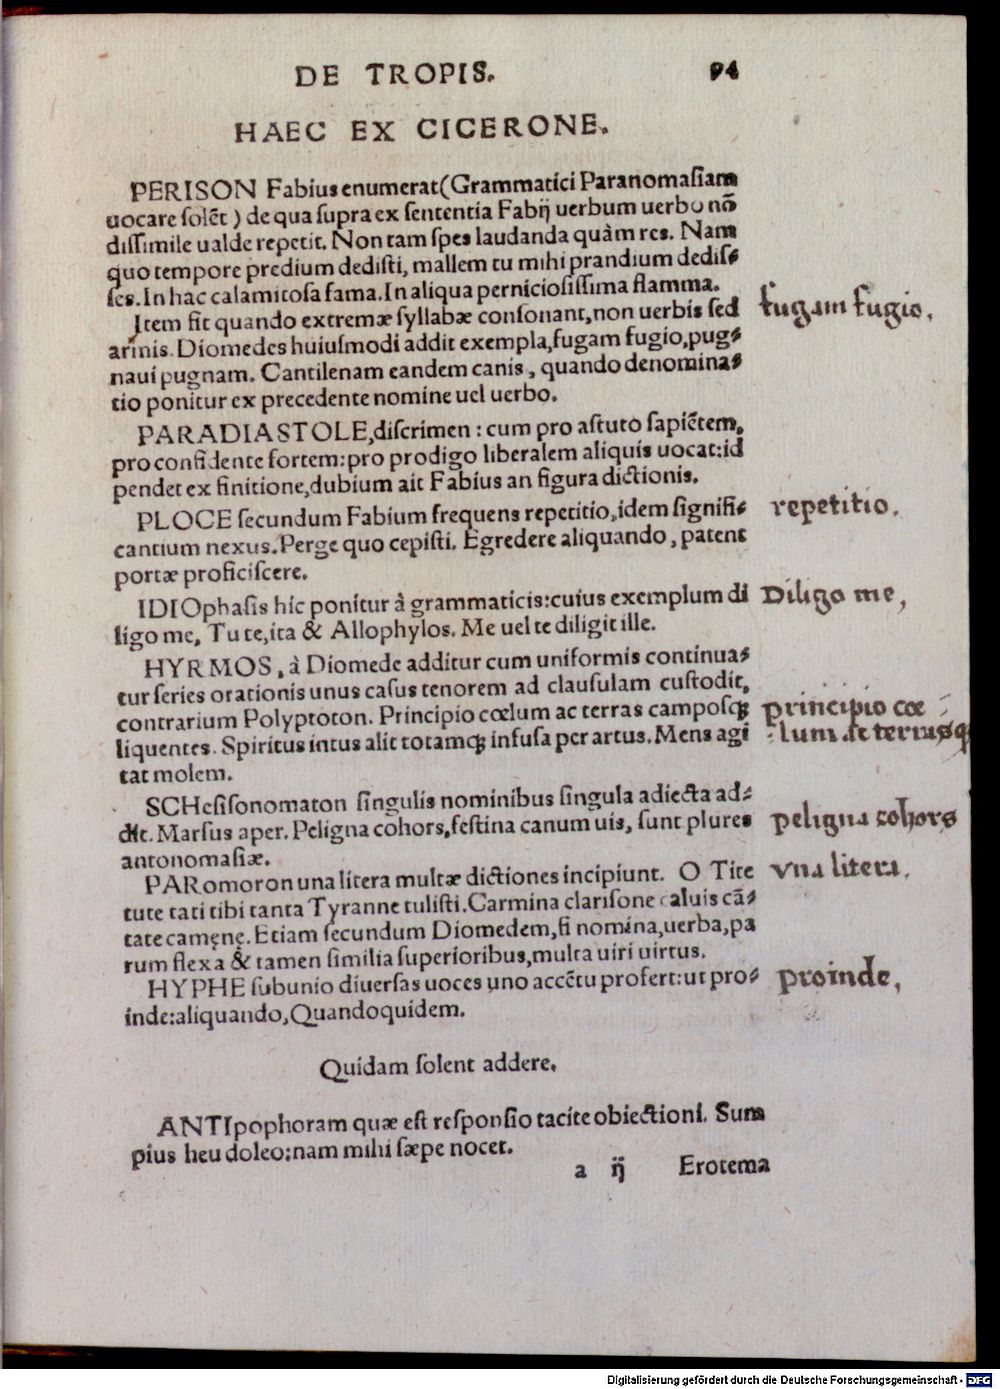 DE TROPIS. 94
HAEC EX CICERONE.
PERISON Fabius enumerat (Grammatici Paranomasiam
uocare solẽt) de qua supra ex sententia Fabij uerbum uerbo nõ
dissimile ualde repetit. Non tam spes laudanda quàm res. Nam
quo tempore predium dedisti, mallem tu mihi prandium dedis-
ses. In hac calamitosa fama. In aliqua perniciosissima flamma.
Item fit quando extremæ syllabæ consonant, non uerbis sed
fugam fugio,
arinis. Diomedes huiusmodi addit exempla, fugam fugio, pug-
naui pugnam. Cantilenam eandem canis, quando denomina-
tio ponitur ex precedente nomine uel uerbo.
PARADIASTOLE, discrimen: cum pro astuto sapiẽtem,
pro confidente fortem: pro prodigo liberalem aliquis uocat: id
pendet ex finitione, dubium ait Fabius an figura dictionis.
PLOCE secundum Fabium frequens repetitio, idem signifi-
repetitio,
cantium nexus. Perge quo cepisti. Egredere aliquando, patent
portæ proficiscere.
IDIOphasis hic ponitur à grammaticis: cuius exemplum di
Diligo me,
ligo me, Tu te, ita & Allophylos. Me uel te diligit ille.
HYRMOS, à Diomede additur cum uniformis continua-
tur series orationis unus casus tenorem ad clausulam custodit,
contrarium Polyptoton. Principio cœlum ac terras camposq́;
principio cœ-
liquentes. Spiritus intus alit totamq́; infusa per artus. Mens agi
lum ac terrasq
tat molem.
SCHesisonomaton singulis nominibus singula adiecta ad-
dit. Marsus aper. Peligna cohors, festina canum uis, sunt plures
peligna cohors
antonomasiæ.
PARomoron una litera multæ dictiones incipiunt. O Tite
vna litera,
tute tati tibi tanta Tyranne tulisti. Carmina clarisone caluis cã-
tate camęnę. Etiam secundum Diomedem, si nomina, uerba, pa
rum flexa & tamen similia superioribus, multa uiri uirtus.
HYPHE subunio diuersas uoces uno accẽtu profert: ut pro-
proinde,
inde: aliquando, Quandoquidem.
Quidam solent addere.
ANTIpophoram quæ est responsio tacite obiectioni. Sum
pius heu doleo: nam mihi sæpe nocet.
a ij Erotema
Digitalisierung gefördert durch die Deutsche Forschungsgemeinschaft - DFG